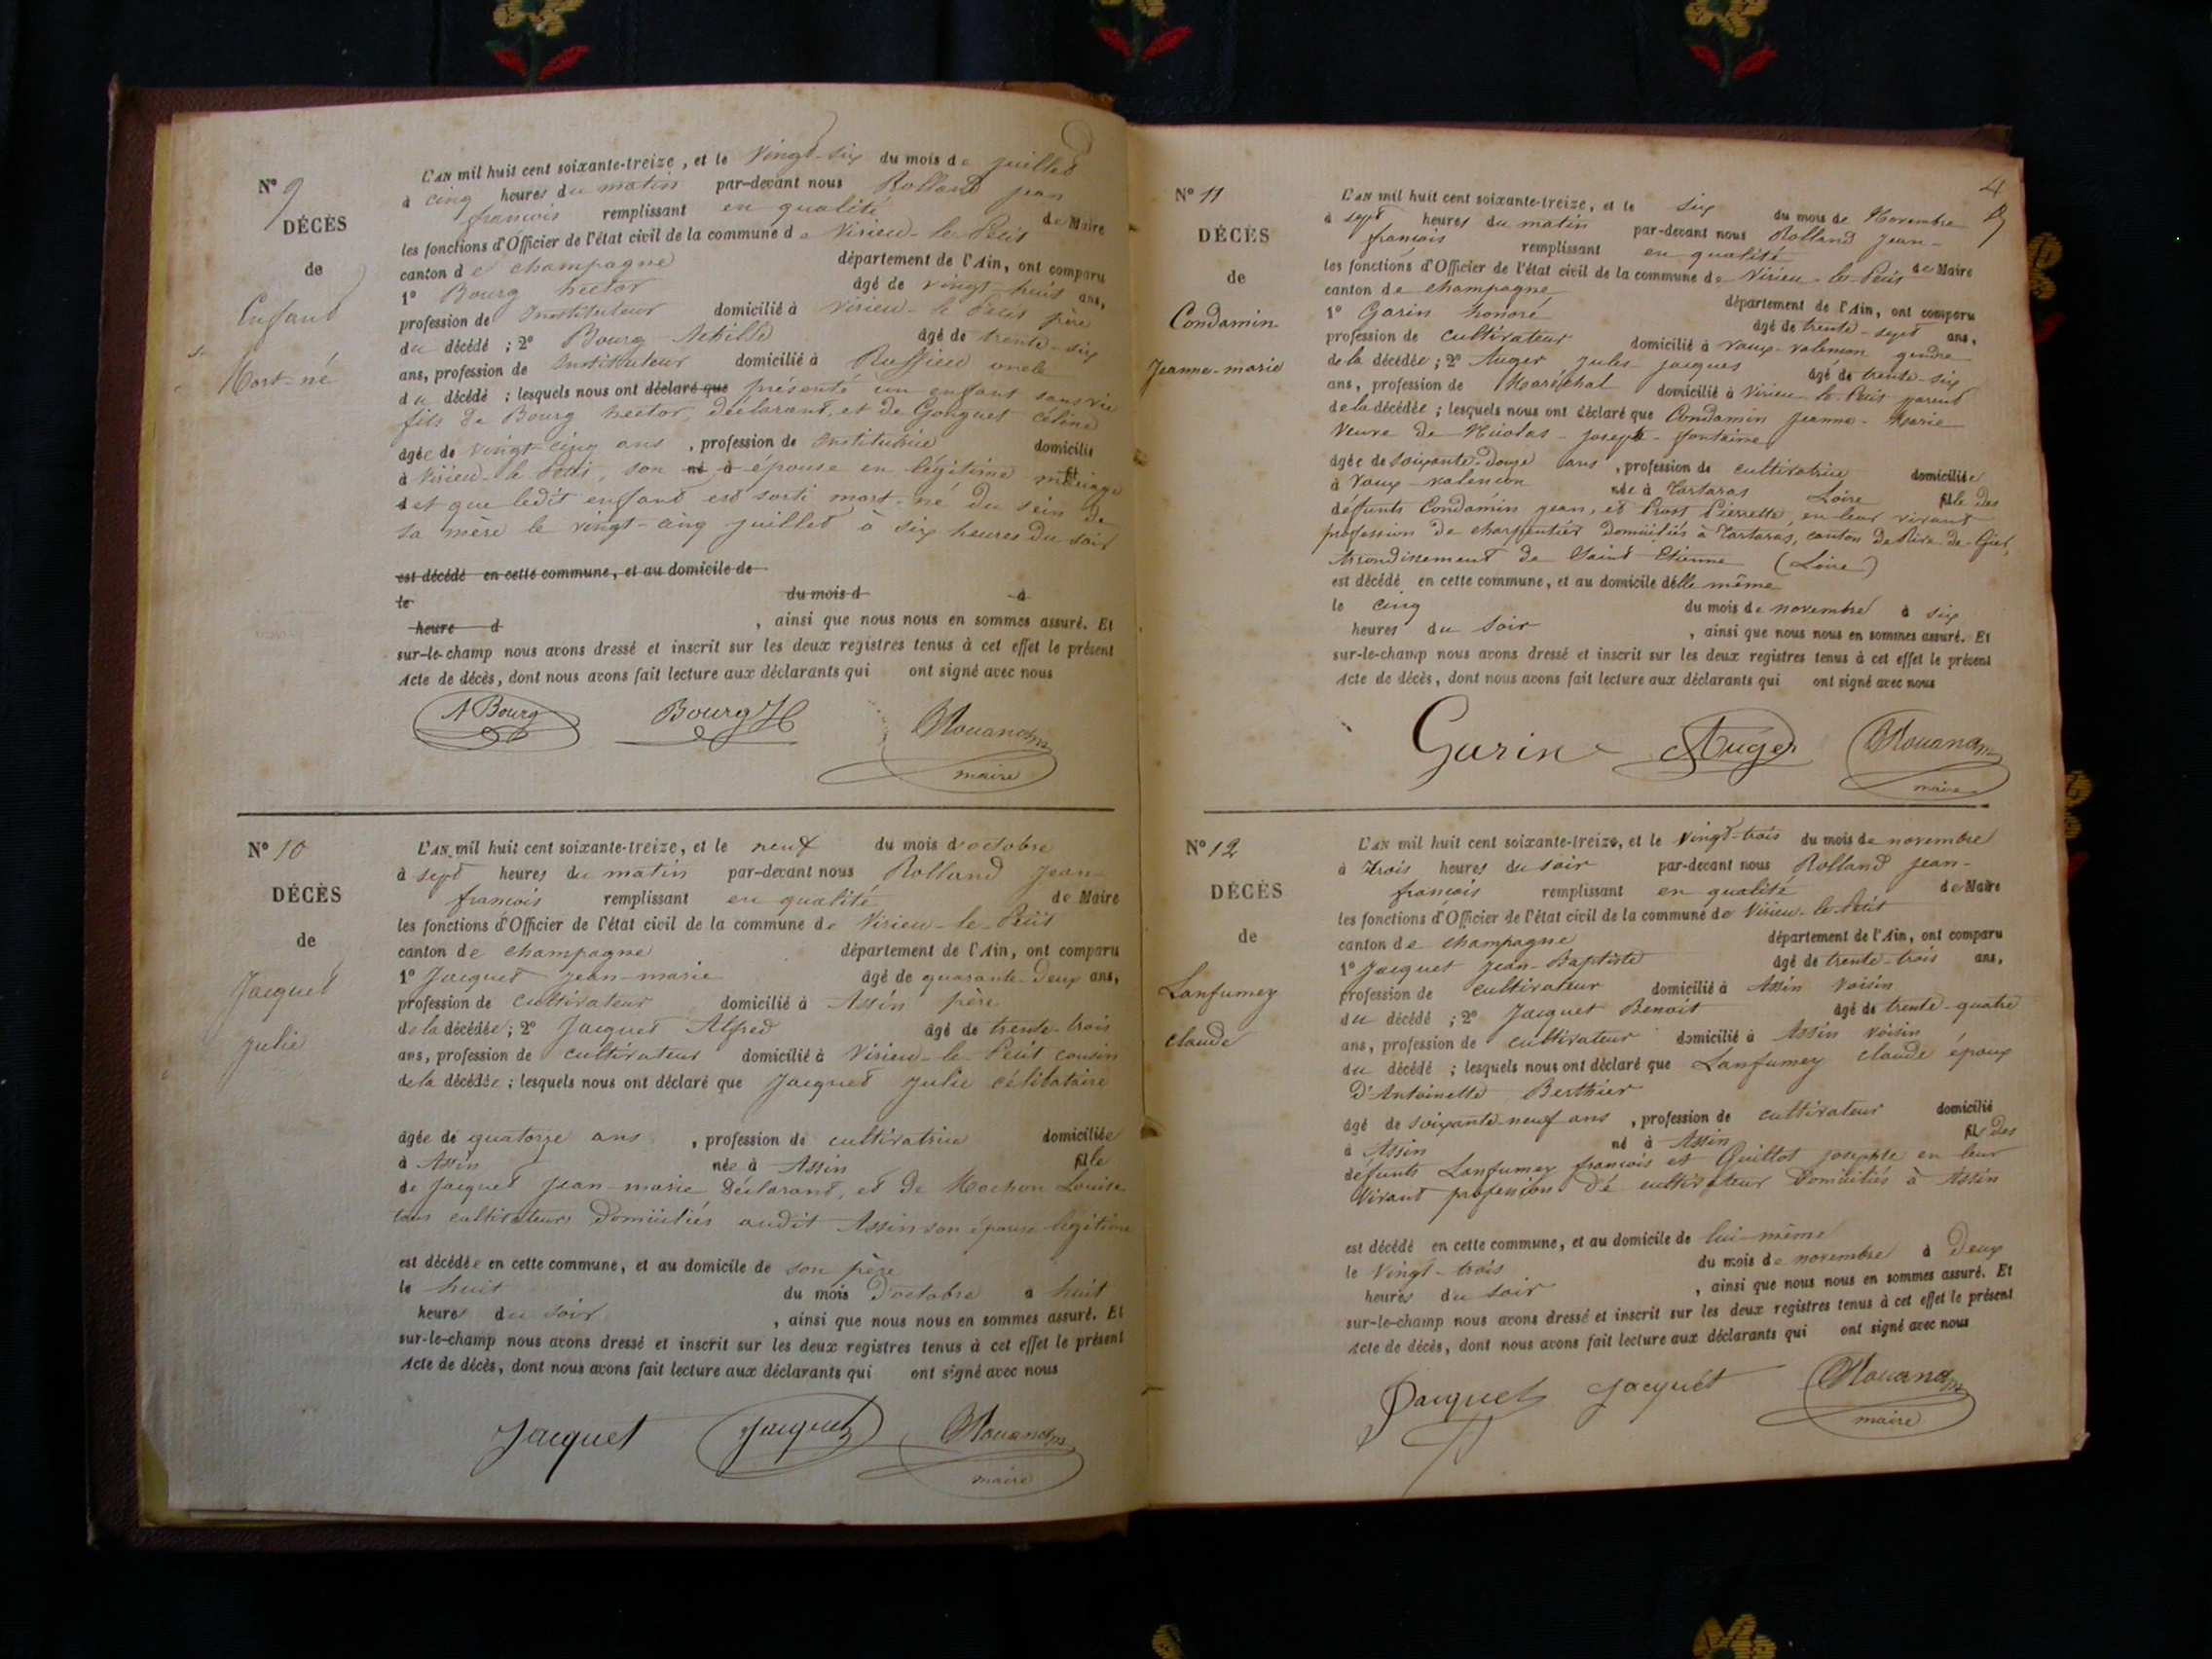 N° 9
DÉCÈS
de
Enfant
Mort-né
L'AN mil huit cent soixante-treize, et le vingt-six du mois de juillet
à cinq heures du matin par-devant nous Rolland jean
francois remplissant en qualité de Maire
les fonctions d'Officier de l'état civil de la commune de Virieu-le-Petit
canton de champagne département de l'Ain, ont comparu
1° Bourg hector âgé de vingt-huit ans,
profession de Instituteur domicilié à Virieu-le Petit père
du décédé ; 2° Bourg Achille âgé de trente-six
ans, profession de Instituteur domicilié à Ruffieu oncle
du décédé ; lesquels nous ont déclaré que présenté un enfant sans vie
fils de Bourg hector, déclarant, et de Gonguet Céline
âgée de vingt-cinq ans, profession de Institutrice domicilié
à Virieu-le Petit, son né à épouse en légitime mariage
d et que ledit enfant est sorti mort-né du sein de
sa mère le vingt-cinq juillet à six heures du soir
est décédé en cette commune, et au domicile de
le du mois d à
heure d , ainsi que nous nous en sommes assuré. Et
sur-le-champ nous avons dressé et inscrit sur les deux registres tenus à cet effet le présent
Acte de décès, dont nous avons fait lecture aux déclarants qui ont signé avec nous
A Bourg Bourg H
maire
N° 10
DÉCÈS
de
Jacquet
julie
L'AN mil huit cent soixante-treize, et le neuf du mois d'octobre
à sept heures du matin par-devant nous Rolland jean-
francois remplissant en qualité de Maire
les fonctions d'Officier de l'état civil de la commune de Virieu-le-Petit
canton de champagne département de l'Ain, ont comparu
1° Jacquet jean-marie âgé de quarante-deux ans,
profession de cultivateur domicilié à Assin père
de la décédée ; 2° Jacquet Alfred âgé de trente-trois
ans, profession de cultivateur domicilié à Virieu-le-Petit cousin
de la décédée ; lesquels nous ont déclaré que Jacquet julie célibataire
âgée de quatorze ans, profession de cultivatrice domiciliée
à Assin née à Assin fille
de Jacquet jean-marie déclarant, et de Mochon Louise
tous cultivateurs domiciliés audit Assin son épouse légitime
est décédée en cette commune, et au domicile de son père
le huit du mois d'octobre à huit
heures du soir, ainsi que nous nous en sommes assuré. Et
sur-le-champ nous avons dressé et inscrit sur les deux registres tenus à cet effet le présent
Acte de décès, dont nous avons fait lecture aux déclarants qui ont signé avec nous
Jacquet Jacquet
maire
4
N° 11
DÉCÈS
de
Condamin
Jeanne-marie
L'AN mil huit cent soixante-treize, et le six du mois de Novembre
à sept heures du matin par-devant nous Rolland jean-
francois remplissant en qualité de Maire
les fonctions d'Officier de l'état civil de la commune de Virieu-le-Petit
canton de champagne département de l'Ain, ont comparu
1° Garin honoré âgé de trente-sept ans,
profession de cultivateur domicilié à vaux-valencon gendre
de la décédée ; 2° Auger jules jacques âgé de trente-six
ans, profession de Maréchal domicilié à Virieu-le-Petit parent
de la décédée ; lesquels nous ont déclaré que Condamin jeanne-Marie
veuve de Nicolas-joseph-fontaine
âgée de soixante-douze ans, profession de cultivatrice domiciliée
à vaux-valencon née à Tartaras Loire fille des
défunts Condamin jean, et Prost Pierrette, en leur vivant
profession de charpentier domiciliés à Tartaras, canton de Rive-de-Gier,
Arrondissement de Saint-Etienne (Loire)
est décédé en cette commune, et au domicile d'elle même
le cinq du mois de novembre à six
heures du soir, ainsi que nous nous en sommes assuré. Et
sur-le-champ nous avons dressé et inscrit sur les deux registres tenus à cet effet le présent
Acte de décès, dont nous avons fait lecture aux déclarants qui ont signé avec nous
Garin Auger
maire
N° 12
DÉCÈS
de
Lanfumey
claude
L'AN mil huit cent soixante-treize, et le vingt-trois du mois de novembre
à Trois heures du soir par-devant nous Rolland jean-
francois remplissant en qualité de Maire
les fonctions d'Officier de l'état civil de la commune de Virieu-le-Petit
canton de champagne département de l'Ain, ont comparu
1° Jacquet jean-Baptiste âgé de trente-trois ans,
profession de cultivateur domicilié à Assin voisin
du décédé ; 2° Jacquet Benoit âgé de trente-quatre
ans, profession de cultivateur domicilié à Assin voisin
du décédé ; lesquels nous ont déclaré que Lanfumey claude époux
d'Antoinette Berthier
âgé de soixante-neuf ans, profession de cultivateur domicilié
à Assin né à Assin fils des
défunts Lanfumey francois et Guillot josephte en leur
vivant profession de cultivateur domiciliés à Assin
est décédé en cette commune, et au domicile de lui-même
le vingt-trois du mois de novembre à deux
heures du soir, ainsi que nous nous en sommes assuré. Et
sur-le-champ nous avons dressé et inscrit sur les deux registres tenus à cet effet le présent
Acte de décès, dont nous avons fait lecture aux déclarants qui ont signé avec nous
Jacquet Jacquet
maire